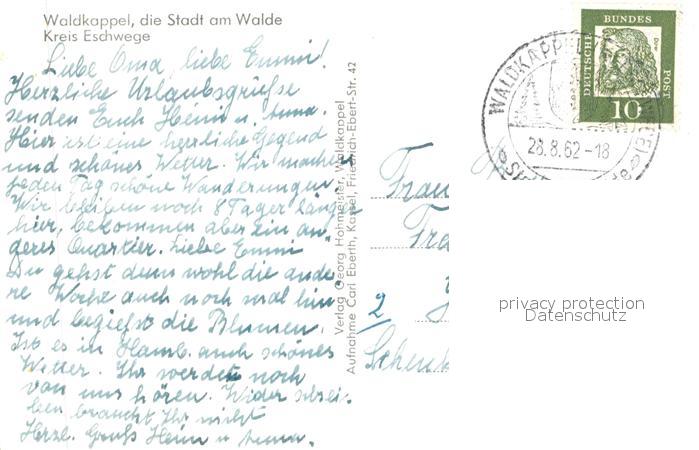 Waldkappel, die Stadt am Walde
Kreis Eschwege
Liebe Oma, liebe Emmi!
Herzliche Urlaubsgrüße
senden Euch Heini u. Anna.
Hier ist eine herrliche Gegend
und schönes Wetter. Wir machen
jeden Tag schöne Wanderungen.
Wir bleiben noch 8 Tage läng
hier, bekommen aber ein an-
deres Quartier. Liebe Emmi
Du gehst denn wohl die ande
re Woche auch noch mal hin
und begießt die Blumen.
Ist es in Hamb. auch schönes
Wetter. Ihr werdet noch
von uns hören. Wider schrei-
ben braucht Ihr nicht
Herzl. Gruß Heini u Anna.
Verlag Georg Hohmeister, Waldkappel
Aufnahme Carl Eberth, Kassel, Friedrich-Ebert-Str. 42
Frau
2
DEUTSCHE BUNDES POST
Dürer
10
WALDKAPPEL
28.8.62-18
privacy protection
Datenschutz